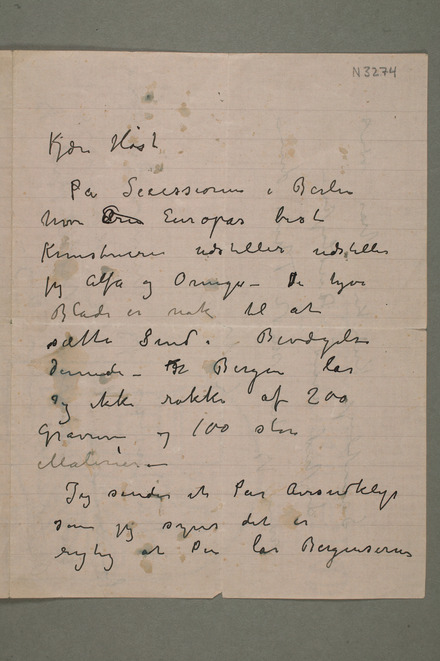 N 3274
Kjære Høst
På Secessionen i Berlin
hvor Europas best
Kunstnere udstiller udstiller
jeg Alfa og Omega – De tyve
Blade er nok til at
sætte Sind i Bevægelse
dernede – I Bergen lar
jeg ikke række af 200
Gravurer og 100 store
Malerier –
Jeg sender et Par Avisudklip
som jeg synes det er
rigtig at De lar Bergenserne